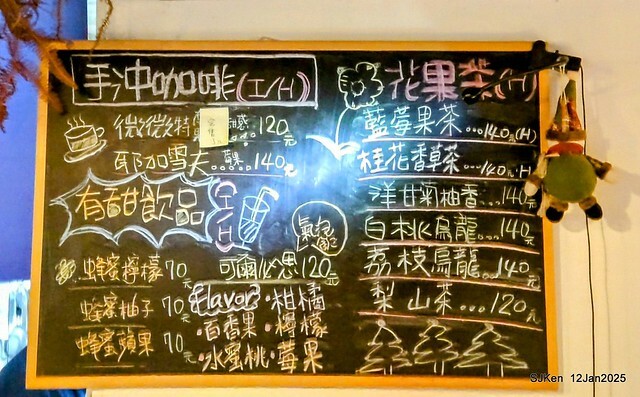 手沖咖啡(I/H)
微微特 感 120元
耶加雪夫.....140元
有甜飲品
(I/H)
氣泡
蜂蜜檸檬 70元
蜂蜜柚子 70元
蜂蜜蘋果 70元
可爾必思 120元
flavor?・柑橘
・百香果・檸檬
・水蜜桃・莓果
花果茶(H)
藍莓果茶...140元(H)
桂花香草茶...140元(H)
洋甘菊柚香...140元
白桃烏龍...140元
荔枝烏龍...140元
梨山茶...120元
SJKen 12Jan2025